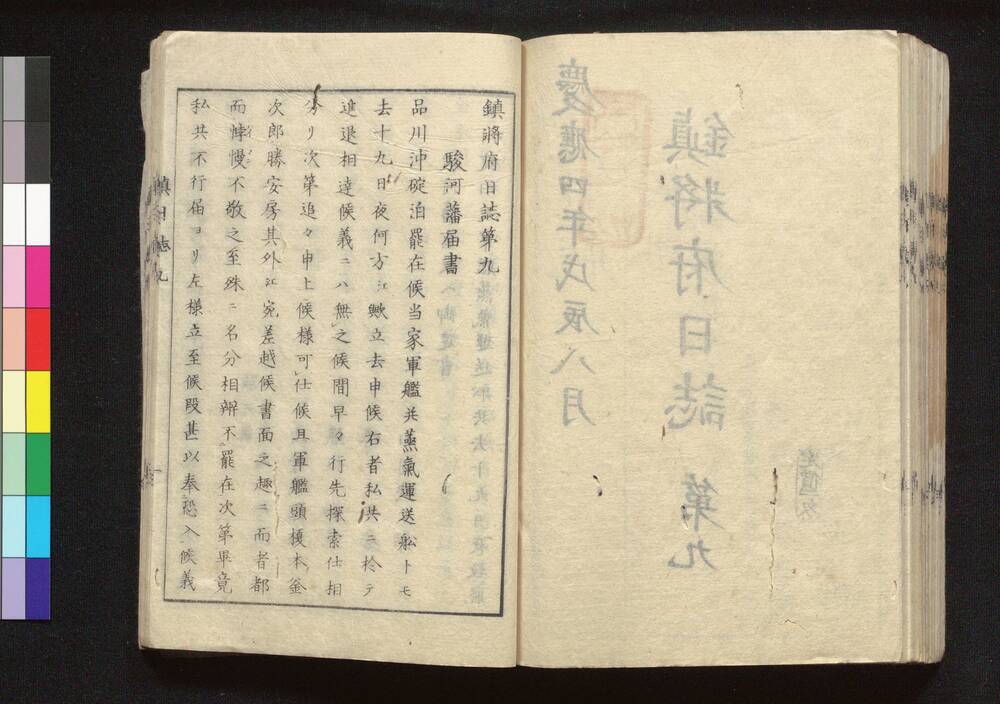 慶應四年戊辰八月
鎮將府日誌 第九
鎮將府日誌第九
駿河藩届書
品川沖碇泊罷在候当家軍艦并蒸氣運送舩トモ
去十九日夜何方江歟立去申候右者私共ニ於テ
進退相達候義ニハ無之候間早々行先探索仕相
分リ次第追々申上候様可仕候且軍艦頭榎本釜
次郎勝安房其外江宛差越候書面之趣ニ而者都
而悖慢不敬之至殊ニ名分相辨不罷在次第畢竟
私共不行届ヨリ左様立至候段甚以奉恐入候義
鎮日誌九